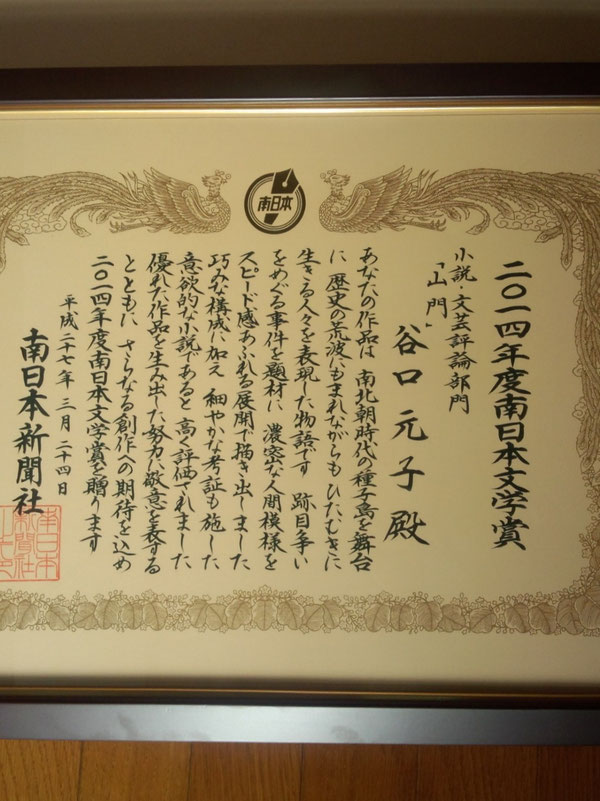 南日本
二〇一四年度南日本文学賞
小説・文芸評論部門
「山門」
谷口元子殿
あなたの作品は 南北朝時代の種子島を舞台
に 歴史の荒波にもまれながらも ひたむきに
生きる人々を表現した物語です 跡目争い
をめぐる事件を題材に 濃密な人間模様を
スピード感あふれる展開で描き出しました
巧みな構成に加え 細やかな考証も施した
意欲的な小説であると 高く評価されました
優れた作品を生み出した努力に敬意を表する
とともに さらなる創作への期待を込め
二〇一四年度南日本文学賞を贈ります
平成二十七年 三月 二十四日
南日本新聞社